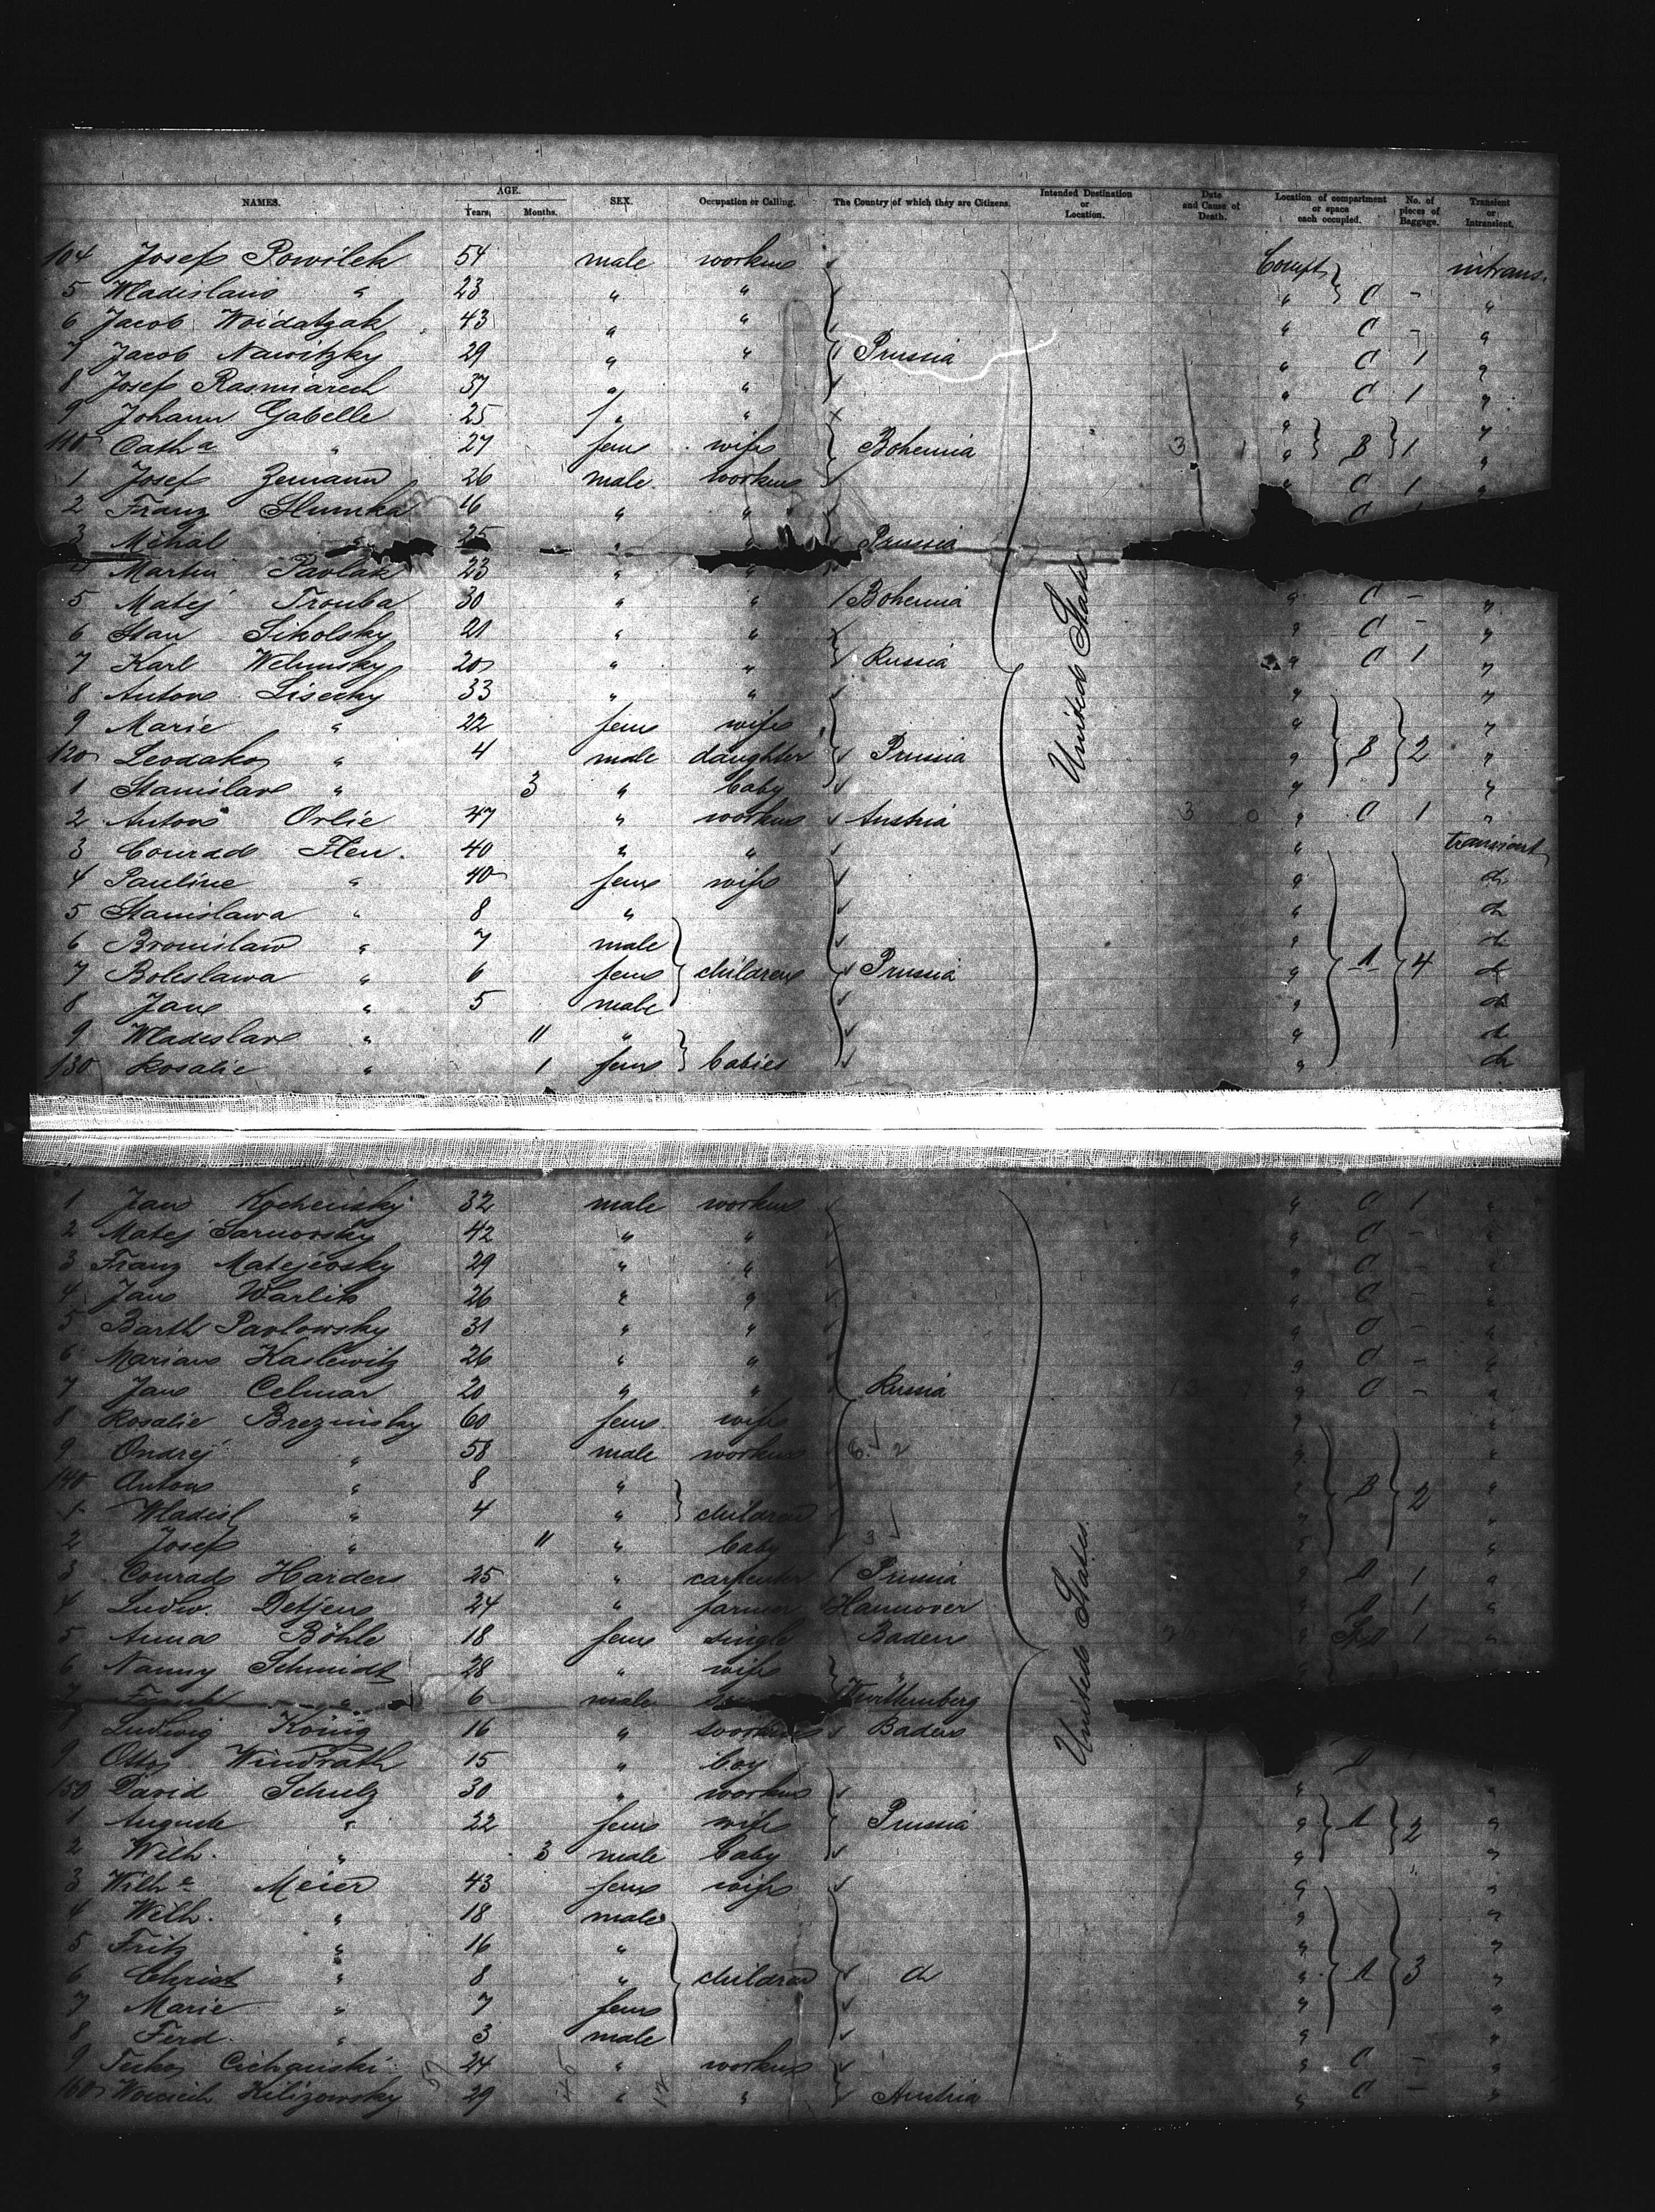 NAMES. AGE. Years, Months. SEX. Occupation or Calling. The Country of which they are Citizens. Intended Destination or Location. Date and Cause of Death. Location of compartment or space each occupied. No. of pieces of Baggage. Transient or Intransient.
104 Josef Powilek 54 male workm Compt intrans.
5 Wladislaus " 23 " " " C - "
6 Jacob Woidatzak 43 " " " C - "
7 Jacob Nawitzky 29 " " Prussia " C 1 "
8 Josef 37 " " " C 1 "
9 Johann Gabelle 25 " " " "
110 Catha " 27 fem wife Bohemia " B 1 "
1 Josef Zemann 26 male workm " C 1 "
2 Franz Slumka 16 " " C
3 Mihal " 25 " " Prussia
4 Martin Pavlak 23 " "
5 Matej Trouba 30 " " Bohemia " C - "
6 Stan Sikolsky 21 " " " C - "
7 Karl Welmsky 20 " " Russia " C 1 "
8 Anton Lisecky 33 " " " "
9 Marie " 22 fem wife " "
120 Leodako " 4 male daughter Prussia " B 2 "
1 Stanislav " 3 " baby " "
2 Anton Orlic 47 " workm Austria 3 0 " C 1 "
3 Conrad 40 " " " transient
4 Pauline " 40 fem wife " do
5 Stanislawa " 8 " " do
6 Bronislaw " 7 male " do
7 Boleslawa " 6 fem children Prussia " A 4 do
8 Jan " 5 male " do
9 Wladislav " 11 " " do
130 Rosalie " 1 fem babies " do
United States
1 Jan Kochensky 32 male workm " C 1 "
2 Matej Sarnovsky 42 " " " C - "
3 Franz Matejevsky 29 " " " C - "
4 Jan Warlik 26 " " " C - "
5 Barth Pavlowsky 31 " " " C - "
6 Marian Kaslewitz 26 " " " C - "
7 Jan Celmar 20 " " Russia " C - "
8 Rosalie Brezinsky 60 fem wife " "
9 Ondrej " 58 male workm " "
140 Anton " 8 " " B 2 "
1 Wladisl " 4 " children " "
2 Josef " 11 " baby " "
3 Conrad Harders 25 " carpenter Prussia " A 1 "
4 Ludw. Detjens 24 " farmer Hannover " A 1 "
5 Anna Böhle 18 fem single Baden " 1 "
6 Nanny Schmidt 28 " wife "
7 Frank " 6 male Württemberg
8 Ludwig König 16 " workm Baden
9 Otto Windrath 15 " boy A
150 David Schulz 30 " workm " "
1 Auguste " 22 fem wife Prussia " A 2 "
2 Wilh. " 3 male baby " "
3 Wilhe Meier 43 fem wife " "
4 Wilh. " 18 male " "
5 Fritz " 16 " " "
6 Christ " 8 " children do " A 3 "
7 Marie " 7 fem " "
8 Ferd. " 3 male " "
9 Cichganski 24 " workm " C - "
160 Woicich Kilizowsky 29 " " Austria " C - "
United States.